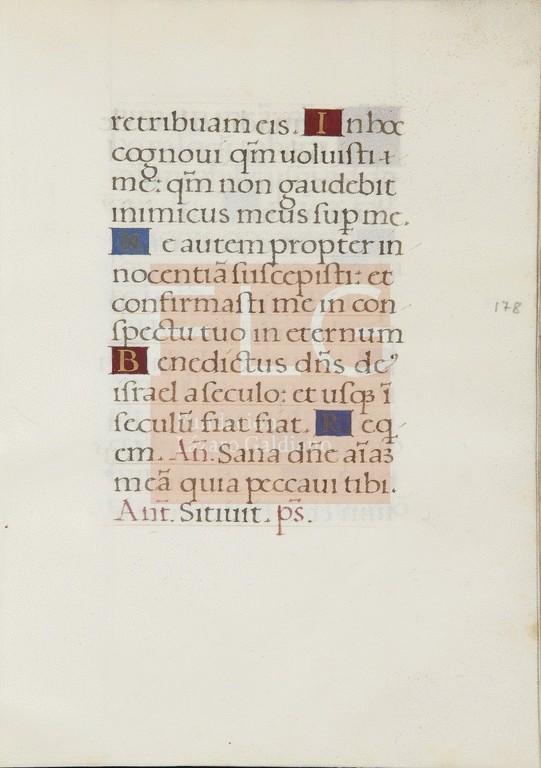 retribuam eis. In hoc
cognoui qm̄ uoluisti
me: qm̄ non gaudebit
inimicus meus sup me.
Me autem propter in
nocentiā suscepisti: et
confirmasti me in con
spectu tuo in eternum
Benedictus dn̄s de'
israel a seculo: et usq; ī
seculū fiat fiat. Req
em. An̄. Sana dn̄e aīaʒ
meā quia peccaui tibi.
Ant̄. Sitiuit. ps̄.
178
FLG
Fundación
Lázaro Galdiano